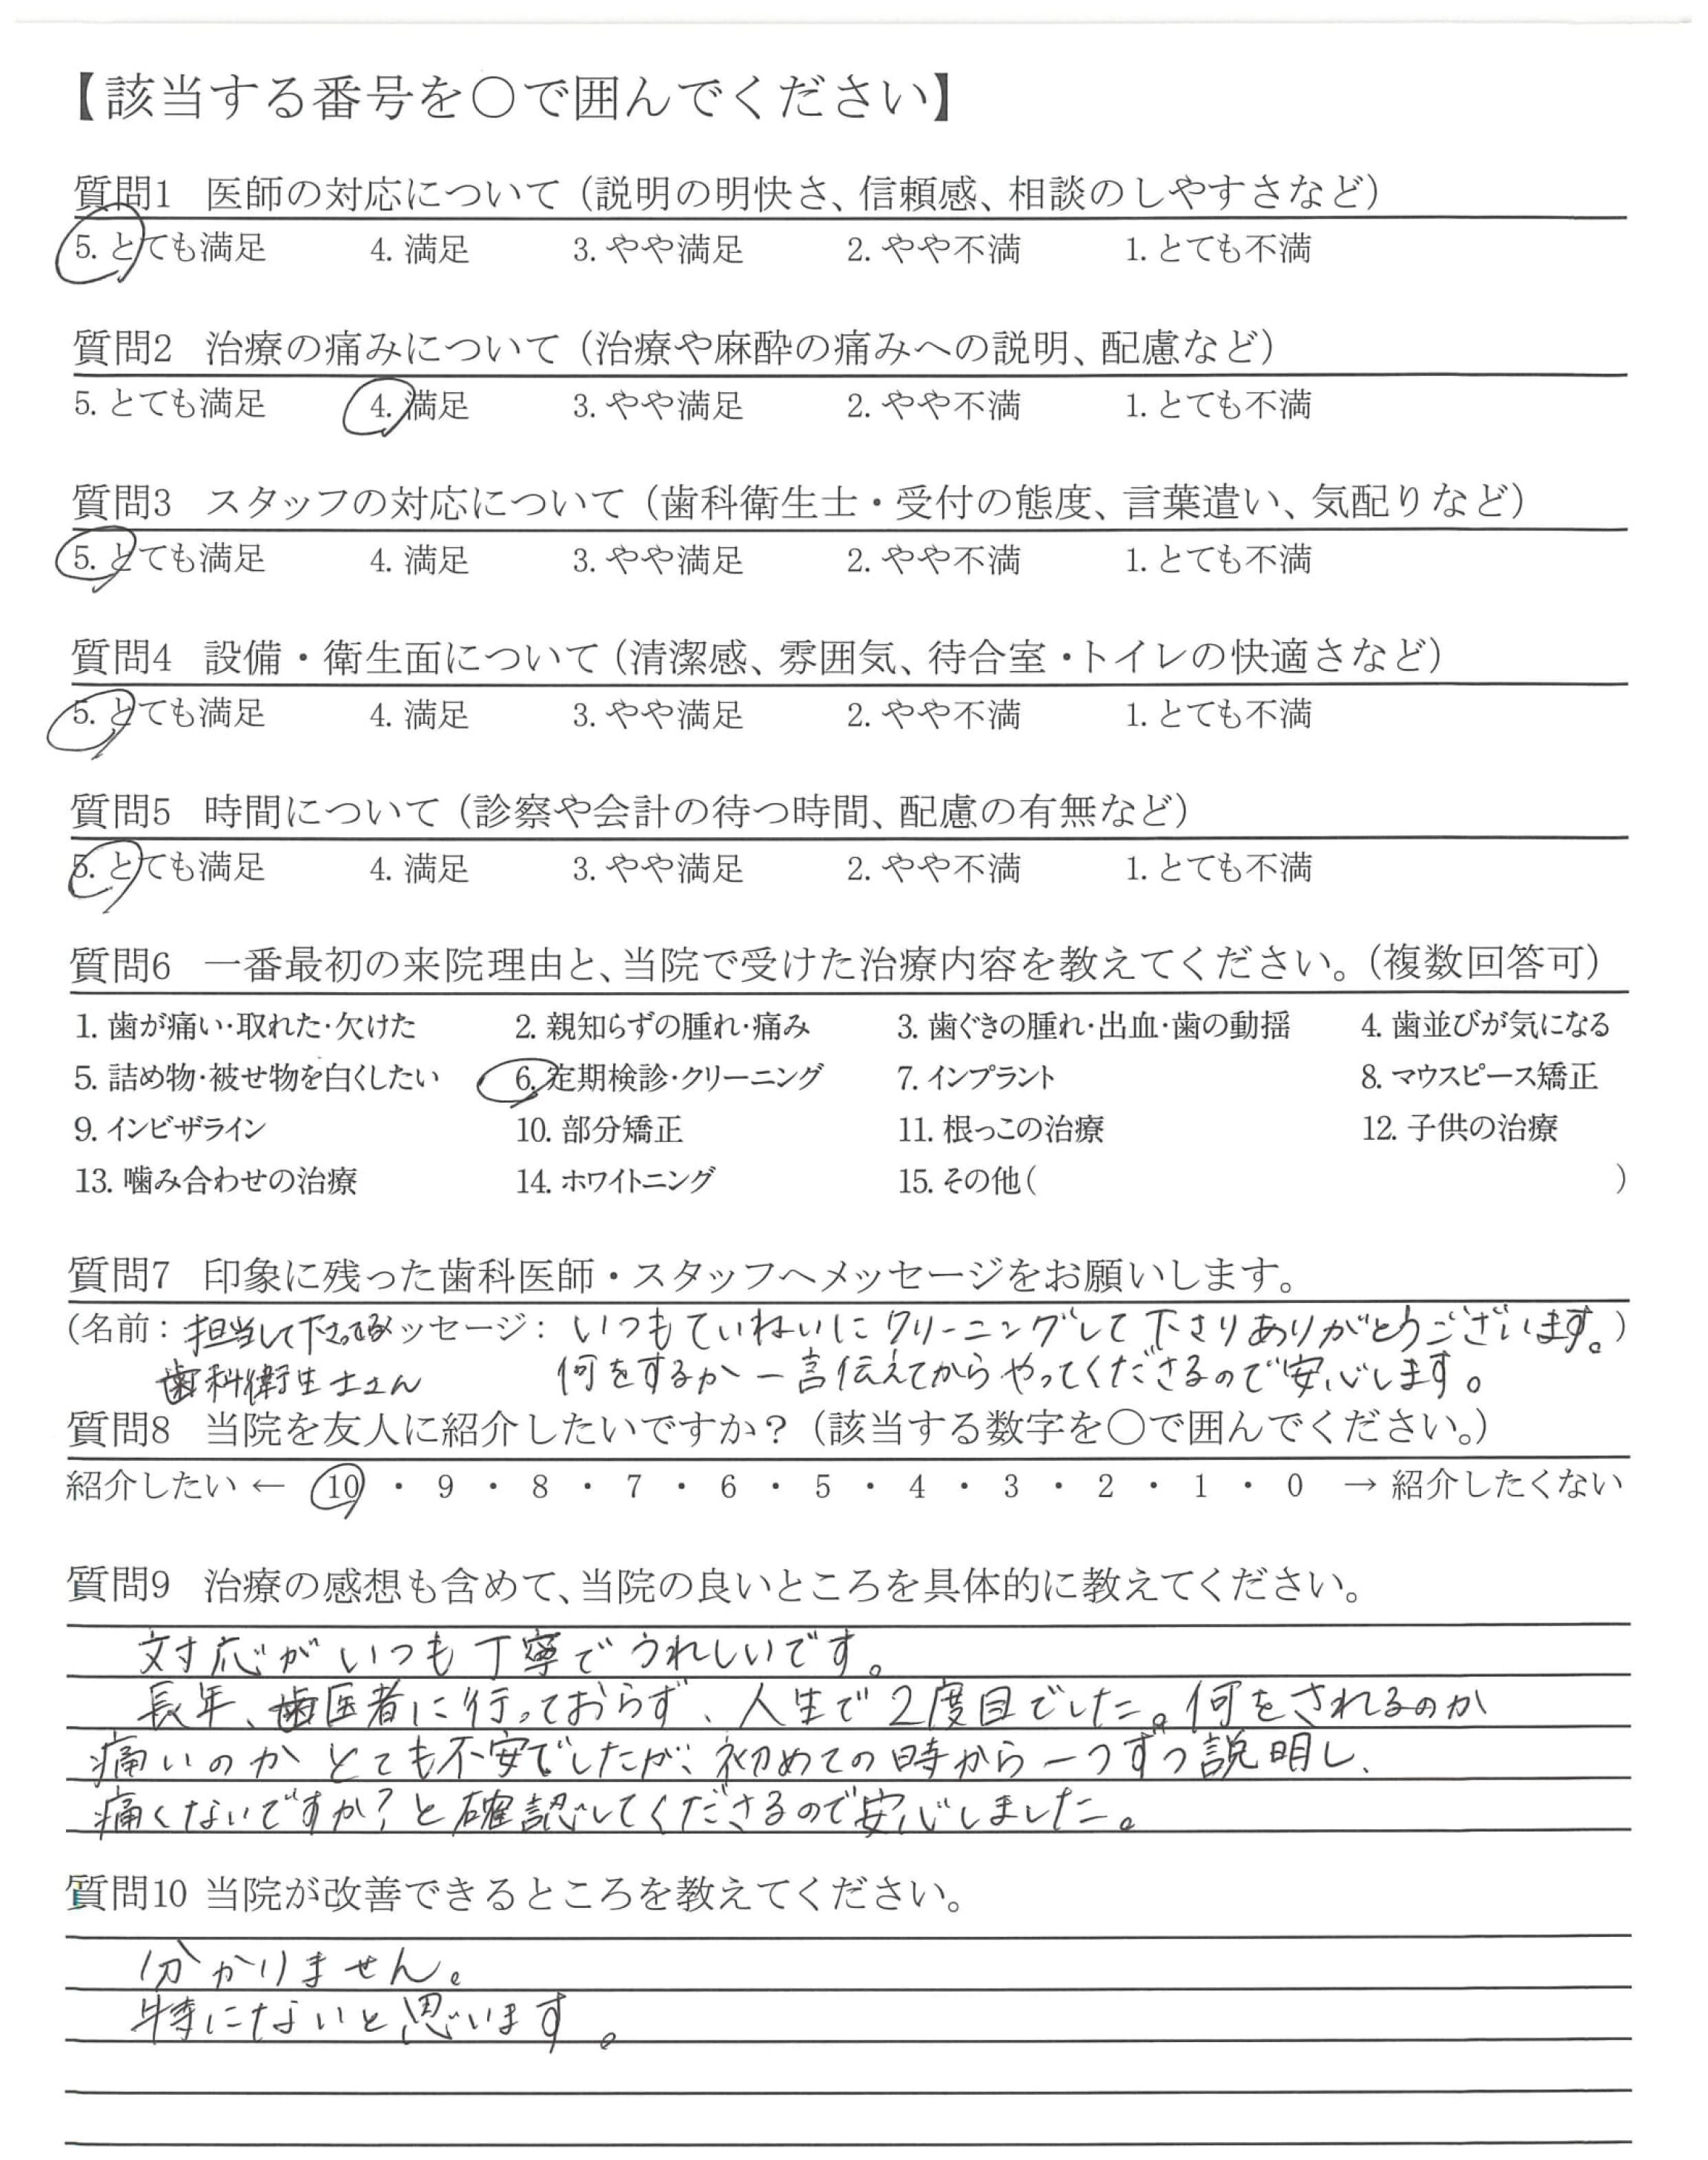 【該当する番号を〇で囲んでください】
質問1 医師の対応について（説明の明快さ、信頼感、相談のしやすさなど）
5. とても満足 4. 満足 3. やや満足 2. やや不満 1. とても不満
質問2 治療の痛みについて（治療や麻酔の痛みへの説明、配慮など）
5. とても満足 4. 満足 3. やや満足 2. やや不満 1. とても不満
質問3 スタッフの対応について（歯科衛生士・受付の態度、言葉遣い、気配りなど）
5. とても満足 4. 満足 3. やや満足 2. やや不満 1. とても不満
質問4 設備・衛生面について（清潔感、雰囲気、待合室・トイレの快適さなど）
5. とても満足 4. 満足 3. やや満足 2. やや不満 1. とても不満
質問5 時間について（診察や会計の待つ時間、配慮の有無など）
5. とても満足 4. 満足 3. やや満足 2. やや不満 1. とても不満
質問6 一番最初の来院理由と、当院で受けた治療内容を教えてください。（複数回答可）
1. 歯が痛い・取れた・欠けた 2. 親知らずの腫れ・痛み 3. 歯ぐきの腫れ・出血・歯の動揺 4. 歯並びが気になる
5. 詰め物・被せ物を白くしたい 6. 定期検診・クリーニング 7. インプラント 8. マウスピース矯正
9. インビザライン 10. 部分矯正 11. 根っこの治療 12. 子供の治療
13. 噛み合わせの治療 14. ホワイトニング 15. その他（ ）
質問7 印象に残った歯科医師・スタッフへメッセージをお願いします。
（名前：担当して下さってる メッセージ：いつもていねいにクリーニングして下さりありがとうございます。）
歯科衛生士さん 何をするか一言伝えてからやってくださるので安心します。
質問8 当院を友人に紹介したいですか？（該当する数字を〇で囲んでください。）
紹介したい ← 10 ・ 9 ・ 8 ・ 7 ・ 6 ・ 5 ・ 4 ・ 3 ・ 2 ・ 1 ・ 0 → 紹介したくない
質問9 治療の感想も含めて、当院の良いところを具体的に教えてください。
対応がいつも丁寧でうれしいです。
長年、歯医者に行っておらず、人生で2度目でした。何をされるのか
痛いのかとても不安でしたが、初めての時から一つずつ説明し、
痛くないですか？と確認してくださるので安心しました。
質問10 当院が改善できるところを教えてください。
分かりません。
特にないと思います。